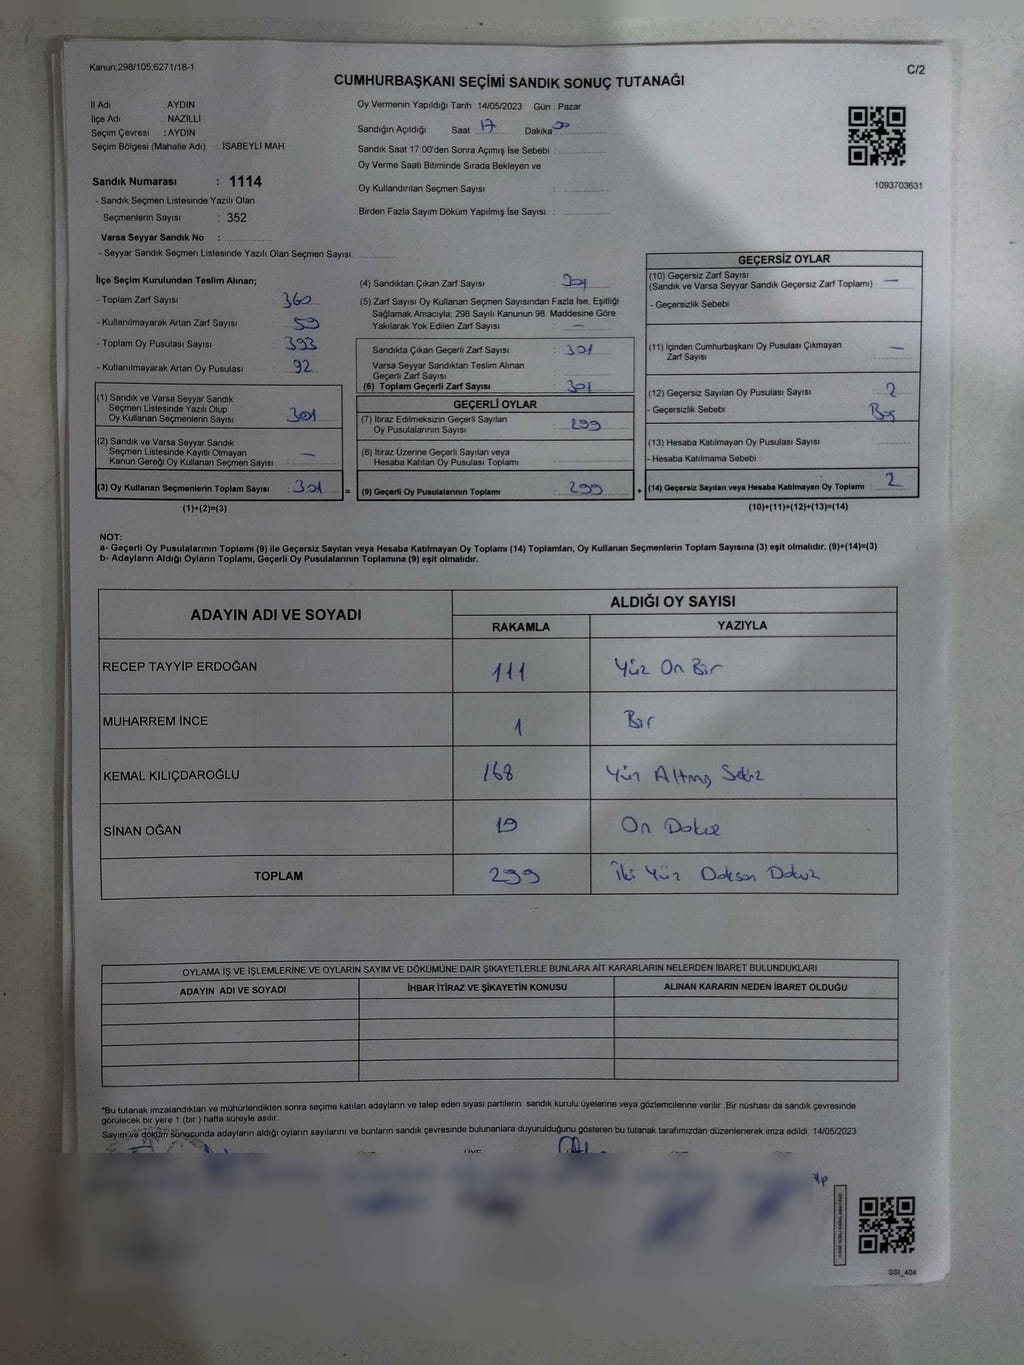 Kanun;298/105;6271/18-1
C/2
CUMHURBAŞKANI SEÇİMİ SANDIK SONUÇ TUTANAĞI
İl Adı : AYDIN
İlçe Adı : NAZİLLİ
Seçim Çevresi : AYDIN
Seçim Bölgesi (Mahalle Adı) : İSABEYLİ MAH.
Sandık Numarası : 1114
- Sandık Seçmen Listesinde Yazılı Olan
Seçmenlerin Sayısı : 352
Varsa Seyyar Sandık No :
- Seyyar Sandık Seçmen Listesinde Yazılı Olan Seçmen Sayısı:
Oy Vermenin Yapıldığı Tarih : 14/05/2023 Gün : Pazar
Sandığın Açıldığı Saat 17 Dakika 00
Sandık Saat 17:00'den Sonra Açımış İse Sebebi :
Oy Verme Saati Bitiminde Sırada Bekleyen ve
Oy Kullandırılan Seçmen Sayısı :
Birden Fazla Sayım Döküm Yapılmış İse Sayısı :
1093703631
İlçe Seçim Kurulundan Teslim Alınan;
- Toplam Zarf Sayısı : 360
- Kullanılmayarak Artan Zarf Sayısı : 59
- Toplam Oy Pusulası Sayısı : 393
- Kullanılmayarak Artan Oy Pusulası : 92
(1) Sandık ve Varsa Seyyar Sandık
Seçmen Listesinde Yazılı Olup
Oy Kullanan Seçmenlerin Sayısı : 301
(2) Sandık ve Varsa Seyyar Sandık
Seçmen Listesinde Kayıtlı Olmayan
Kanun Gereği Oy Kullanan Seçmen Sayısı : —
(3) Oy Kullanan Seçmenlerin Toplam Sayısı : 301 =
(1)+(2)=(3)
(4) Sandıktan Çıkan Zarf Sayısı : 301
(5) Zarf Sayısı Oy Kullanan Seçmen Sayısından Fazla İse, Eşitliği
Sağlamak Amacıyla; 298 Sayılı Kanunun 98. Maddesine Göre
Yakılarak Yok Edilen Zarf Sayısı : —
Sandıkta Çıkan Geçerli Zarf Sayısı : 301
Varsa Seyyar Sandıktan Teslim Alınan
Geçerli Zarf Sayısı :
(6) Toplam Geçerli Zarf Sayısı : 301
GEÇERLİ OYLAR
(7) İtiraz Edilmeksizin Geçerli Sayılan
Oy Pusulalarının Sayısı : 299
(8) İtiraz Üzerine Geçerli Sayılan veya
Hesaba Katılan Oy Pusulası Toplamı :
(9) Geçerli Oy Pusulalarının Toplamı : 299 +
GEÇERSİZ OYLAR
(10) Geçersiz Zarf Sayısı
(Sandık ve Varsa Seyyar Sandık Geçersiz Zarf Toplamı) : —
- Geçersizlik Sebebi :
(11) İçinden Cumhurbaşkanı Oy Pusulası Çıkmayan
Zarf Sayısı : —
(12) Geçersiz Sayılan Oy Pusulası Sayısı : 2
- Geçersizlik Sebebi : Boş
(13) Hesaba Katılmayan Oy Pusulası Sayısı :
- Hesaba Katılmama Sebebi :
(14) Geçersiz Sayılan veya Hesaba Katılmayan Oy Toplamı : 2
(10)+(11)+(12)+(13)=(14)
NOT:
a- Geçerli Oy Pusulalarının Toplamı (9) ile Geçersiz Sayılan veya Hesaba Katılmayan Oy Toplamı (14) Toplamları, Oy Kullanan Seçmenlerin Toplam Sayısına (3) eşit olmalıdır. (9)+(14)=(3)
b- Adayların Aldığı Oyların Toplamı, Geçerli Oy Pusulalarının Toplamına (9) eşit olmalıdır.
ADAYIN ADI VE SOYADI
ALDIĞI OY SAYISI
RAKAMLA YAZIYLA
RECEP TAYYİP ERDOĞAN 111 Yüz On Bir
MUHARREM İNCE 1 Bir
KEMAL KILIÇDAROĞLU 168 Yüz Altmış Sekiz
SİNAN OĞAN 19 On Dokuz
TOPLAM 299 İki Yüz Doksan Dokuz
OYLAMA İŞ VE İŞLEMLERİNE VE OYLARIN SAYIM VE DÖKÜMÜNE DAİR ŞİKAYETLERLE BUNLARA AİT KARARLARIN NELERDEN İBARET BULUNDUKLARI
ADAYIN ADI VE SOYADI İHBAR İTİRAZ VE ŞİKAYETİN KONUSU ALINAN KARARIN NEDEN İBARET OLDUĞU
*Bu tutanak imzalandıktan ve mühürlendikten sonra seçime katılan adayların ve talep eden siyasi partilerin sandık kurulu üyelerine veya gözlemcilerine verilir .Bir nüshası da sandık çevresinde
görülecek bir yere 1 (bir ) hafta süreyle asılır.
Sayım ve döküm sonucunda adayların aldığı oyların sayılarını ve bunların sandık çevresinde bulunanlara duyurulduğunu gösteren bu tutanak tarafımızdan düzenlenerek imza edildi. 14/05/2023
SSI_404